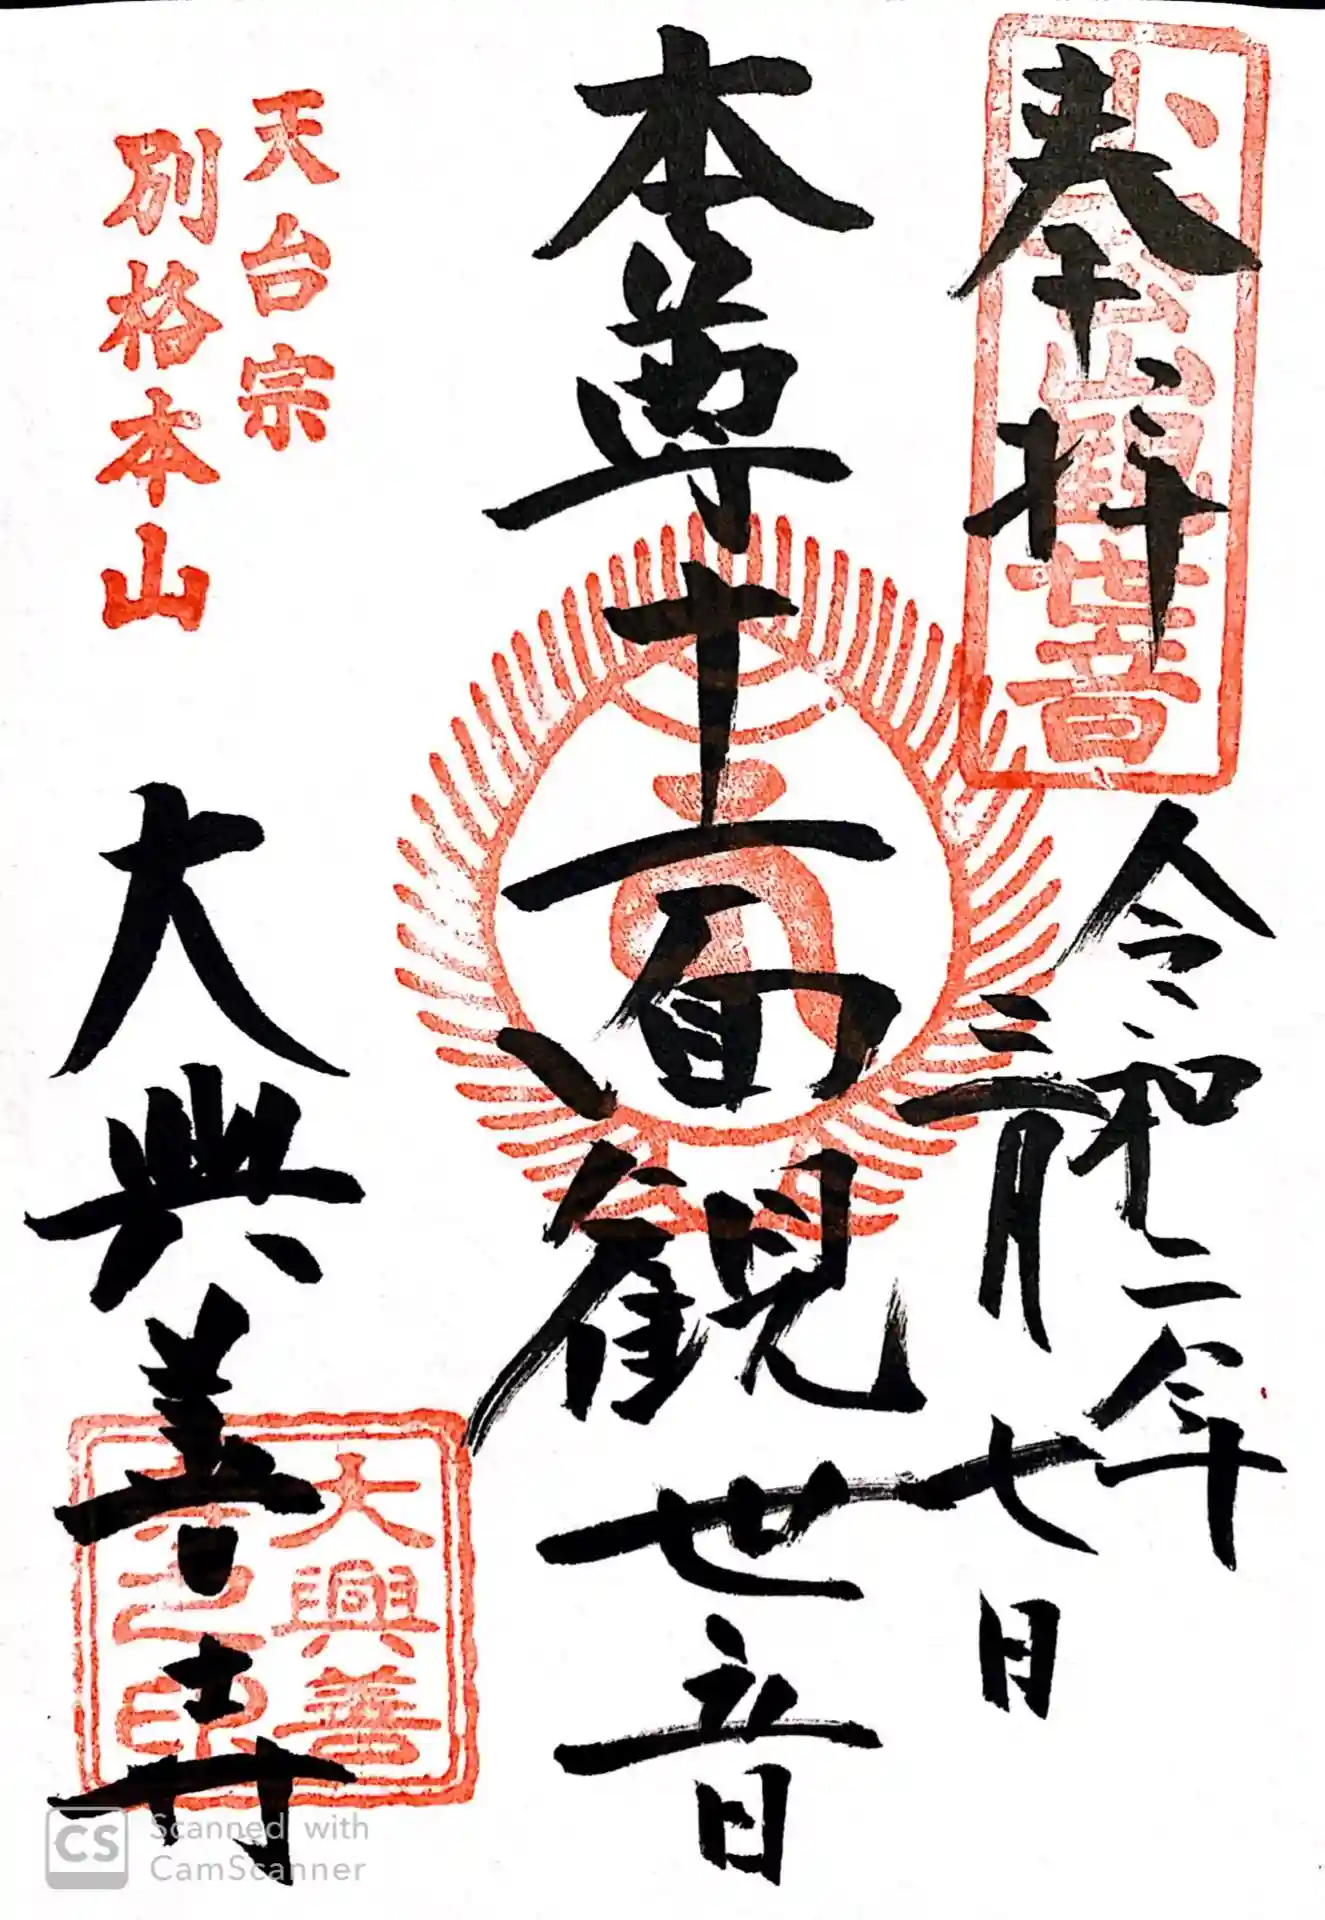 奉拝
令和二年
三月七日
本尊十一面観世音
天台宗
別格本山
大興善寺
大興善
寺之印
小松山観世音
CS Scanned with
CamScanner